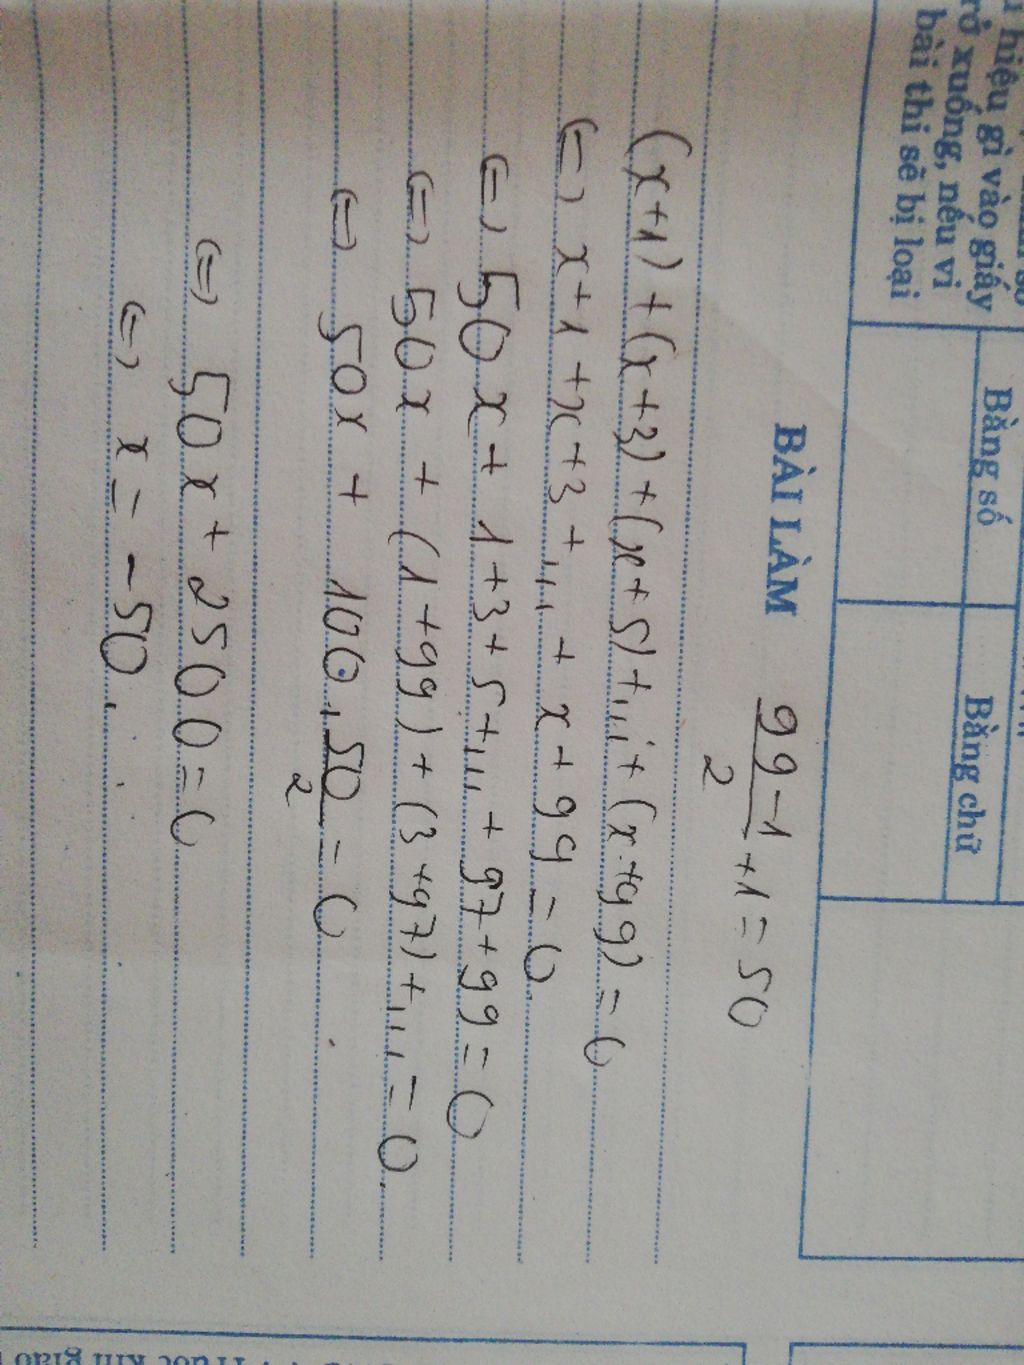 hiệu gì vào giấy
xuống, nếu vi
bài thi sẽ bị loại
Bằng số
Bằng chữ
BÀI LÀM
99-1/2 +1 = 50
(x+1) + (x+3) + (x+5) + ... + (x+99) = 0
(=) x+1 + x+3 + ... + x+99 = 0.
(=) 50x + 1+3+5+... + 97+99 = 0
(=) 50x + (1+99) + (3+97) + ... = 0.
(=) 50x + 100.50/2 = 0
(=) 50x + 2500 = 0
(=) x = -50.